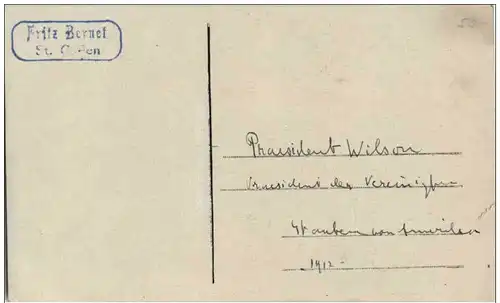 Fritz Bernet
St. Gallen
Praesident Wilson
Praesident der Vereinigten
Staaten von Amerika
1912